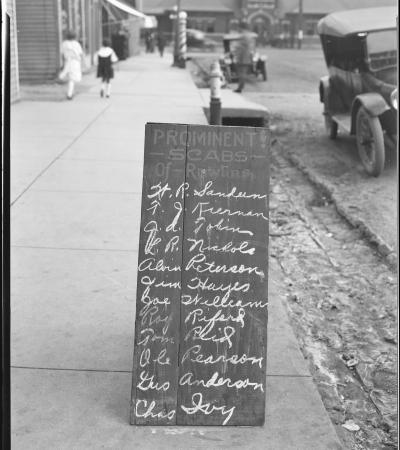 PROMINENT
- SCABS -
Of - Rawlins
H. R. Sandeen
T. J. Kiernan
J. d. Tobin
C. R. Nichols
Alvin Peterson
Jim Hayes
Joe Williams
Roy Riford
Tom Reid
Ole Pearson
Gus Anderson
Chas Ivy